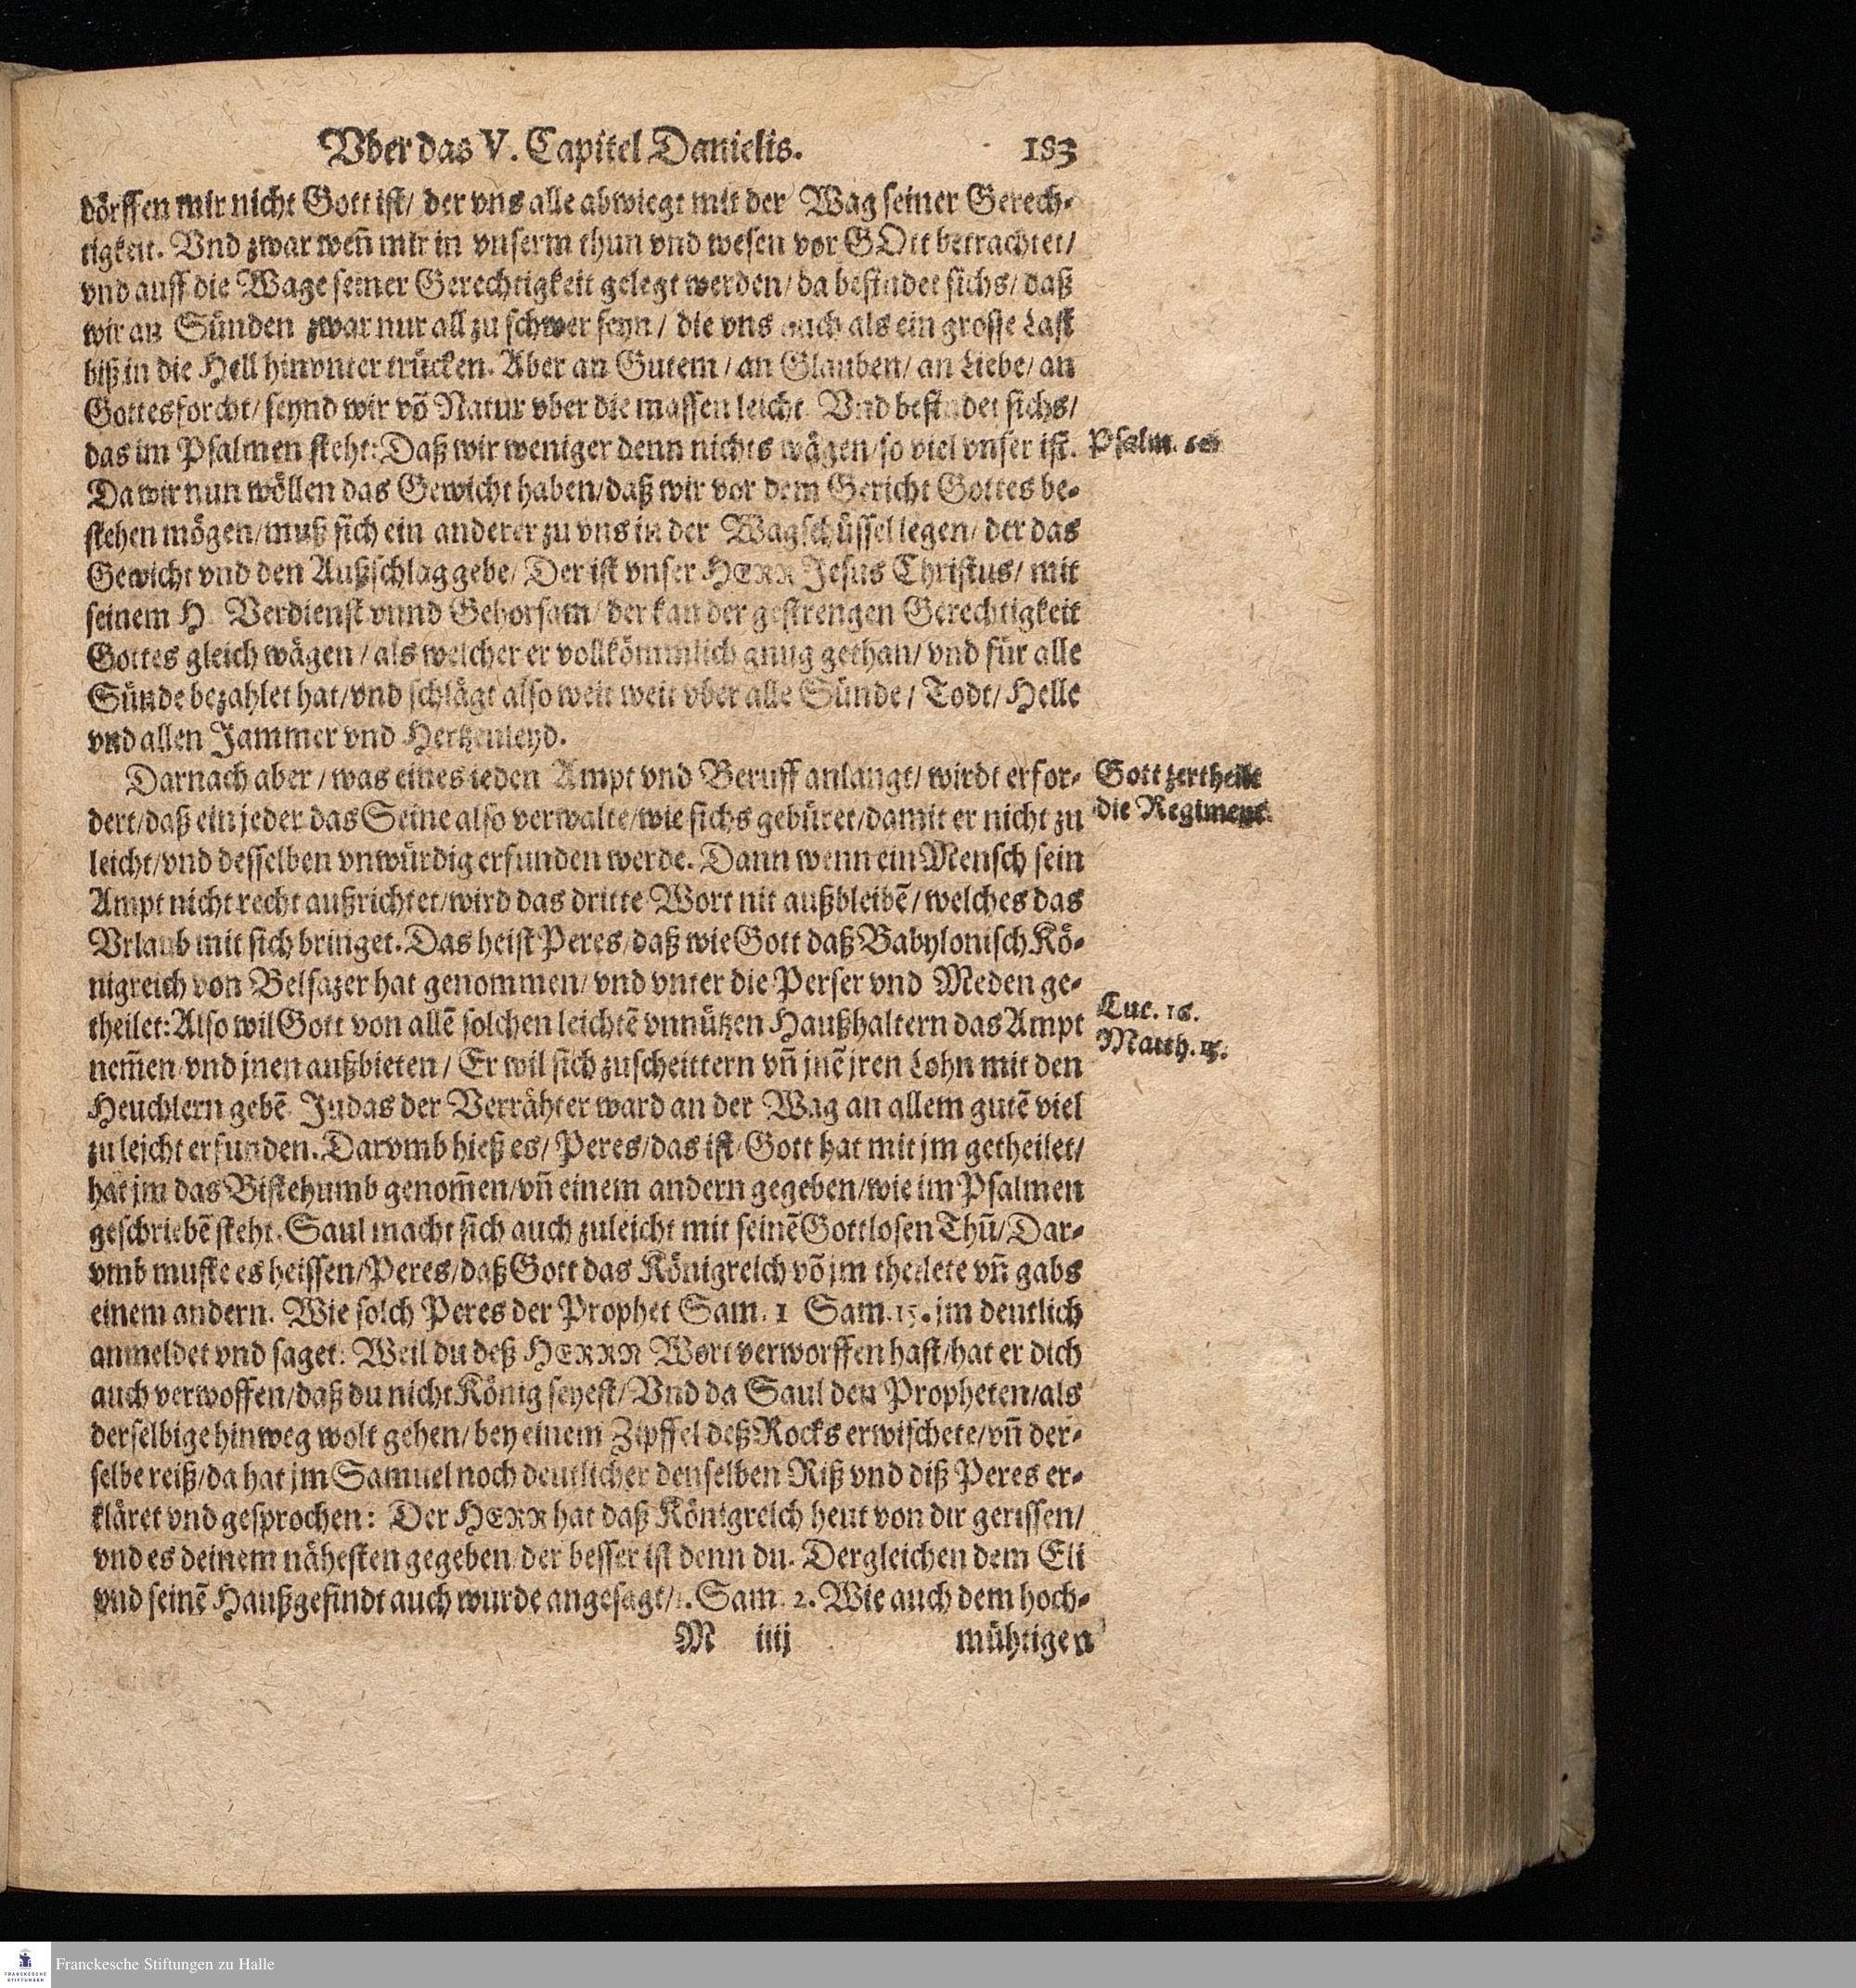 Vber das V. Capitel Danielis. 183
dörffen wir nicht Gott ist/ der vns alle abwiegt mit der Wag seiner Gerech-
tigkeit. Vnd zwar weñ wir in vnserm thun vnd wesen vor GOtt betrachtet/
vnd auff die Wage seiner Gerechtigkeit gelegt werden/ da befindet sichs/ daß
wir an Sünden zwar nur all zu schwer seyn/ die vns auch als ein grosse Last
biß in die Hell hinvnter trücken. Aber an Gutem/ an Glauben/ an Liebe/ an
Gottesforcht/ seynd wir võ Natur vber die massen leicht Vnd befindet sichs/
das im Psalmen steht: Daß wir weniger denn nichts wägen/ so viel vnser ist.
Psalm.
Da wir nun wöllen das Gewicht haben/ daß wir vor dem Gericht Gottes be-
stehen mögen/ muß sich ein anderer zu vns in der Wagschüssel legen/ der das
Gewicht vnd den Außschlag gebe/ Der ist vnser HERR Jesus Christus/ mit
seinem H. Verdienst vnnd Gehorsam/ der kan der gestrengen Gerechtigkeit
Gottes gleich wägen/ als welcher er vollkömmlich gnug gethan/ vnd für alle
Sünde bezahlet hat/ vnd schlägt also weit weit vber alle Sünde/ Todt/ Helle
vnd allen Jammer vnd Hertzenleyd.
Darnach aber/ was eines ieden Ampt vnd Beruff anlangt/ wirdt erfor-
Gott zertheilt
die Regiment.
dert/ daß ein jeder das Seine also verwalte/ wie sichs gebüret/ damit er nicht zu
leicht/ vnd desselben vnwürdig erfunden werde. Dann wenn ein Mensch sein
Ampt nicht recht außrichtet/ wird das dritte Wort nit außbleibẽ/ welches das
Vrlaub mit sich bringet. Das heist Peres/ daß wie Gott daß Babylonisch Kö-
nigreich von Belsazer hat genommen/ vnd vnter die Perser vnd Meden ge-
theilet: Also wil Gott von allẽ solchen leichtẽ vnnützen Haußhaltern das Ampt
Luc. 16.
Matth.
nem̃en vnd jnen außbieten/ Er wil sich zuscheittern vñ jnẽ jren Lohn mit den
Heuchlern gebẽ Judas der Verrähter ward an der Wag an allem gutẽ viel
zu leicht erfunden. Darvmb hieß es/ Peres/ das ist/ Gott hat mit jm getheilet/
hat jm das Bisthumb genom̃en/ vñ einem andern gegeben/ wie im Psalmen
geschriebẽ steht. Saul macht sich auch zuleicht mit seinẽ Gottlosen Thũ/ Dar-
vmb muste es heissen/ Peres/ daß Gott das Königreich võ jm theilete vñ gabs
einem andern. Wie solch Peres der Prophet Sam. 1 Sam. 15. jm deutlich
anmeldet vnd saget: Weil du deß HERRN Wort verworffen hast/ hat er dich
auch verwoffen/ daß du nicht König seyest/ Vnd da Saul den Propheten/ als
derselbige hinweg wolt gehen/ bey einem Zipffel deß Rocks erwischete/ vñ der-
selbe reiß/ da hat jm Samuel noch deutlicher denselben Riß vnd diß Peres er-
kläret vnd gesprochen: Der HERR hat daß Königreich heut von dir gerissen/
vnd es deinem nähesten gegeben/ der besser ist denn du. Dergleichen dem Eli
vnd seinẽ Haußgesindt auch wurde angesagt/ 1. Sam. 2. Wie auch dem hoch-
M iiij mühtigen
Franckesche Stiftungen zu Halle
FRANCKESCHE
STIFTUNGEN